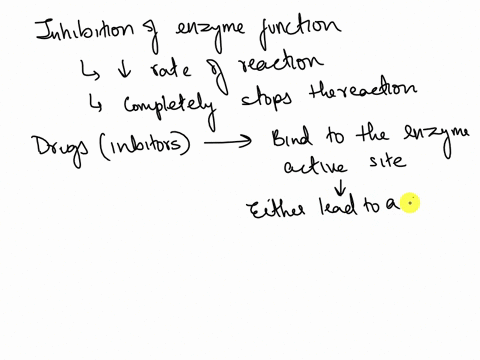 Inhibition of enzyme function
↳ ↓ rate of reaction
↳ Completely stops the reaction
Drugs (inbitors) → Bind to the enzyme
active site
↓
Either lead to a